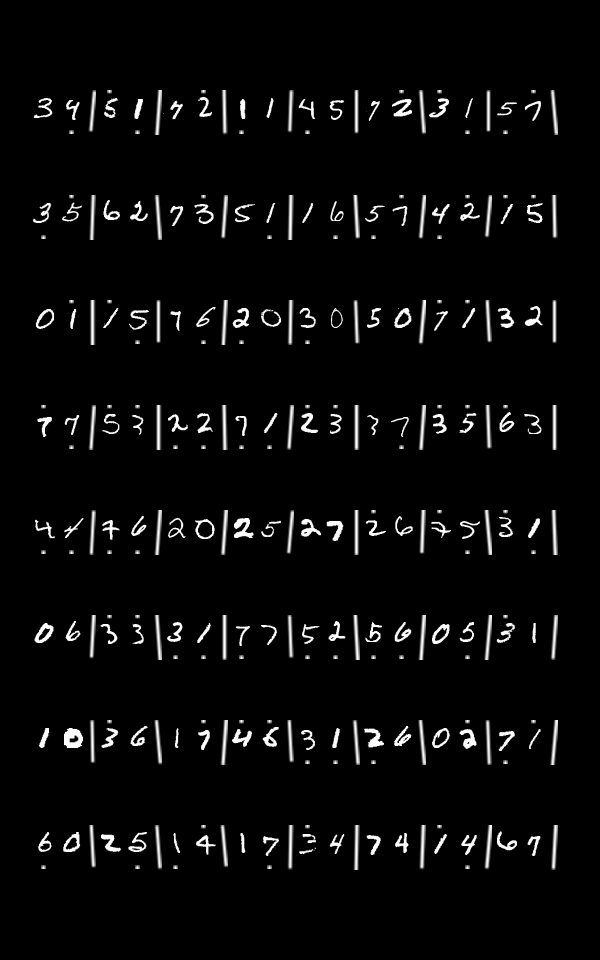 3 4̣ | 5̇ 1̣ | 7 2̇ | 1̇ 1 | 4̣ 5 | 7 2̇ | 3̇ 1̣ | 5̣ 7̇ |
3̣ 5̇ | 6 2 | 7 3̇ | 5 1̣ | 1 6̣ | 5̣ 7̇ | 4̣ 2̇ | 1̇ 5̇ |
0 1̇ | 1̇ 5̣ | 7 6̣ | 2̣ 0 | 3̣ 0 | 5 0 | 7̇ 1̇ | 3 2 |
7̇ 7̣ | 5̇ 3̇ | 2̣ 2̣ | 7̣ 1̣ | 2̇ 3̇ | 3 7̣ | 3̇ 5̇ | 6̇ 3 |
4̣ 4̣ | 7̣ 6̣ | 2 0 | 2̣ 5 | 2 7 | 2̇ 6 | 7̇ 5̣ | 3̇ 1̣ |
0 6 | 3̇ 3̇ | 3̣ 1̣ | 7̣ 7 | 5 2̣ | 5̣ 6̣ | 0 5̣ | 3̇ 1 |
1 0 | 3̇ 6 | 1 7̇ | 4̇ 6̇ | 3̣ 1̣ | 2̣ 6 | 0 2̣ | 7̣ 1̇ |
6̣ 0 | 2 5̣ | 1̣ 4̇ | 1 7̣ | 3̇ 4 | 7 4 | 1̇ 4̣ | 6 7 |